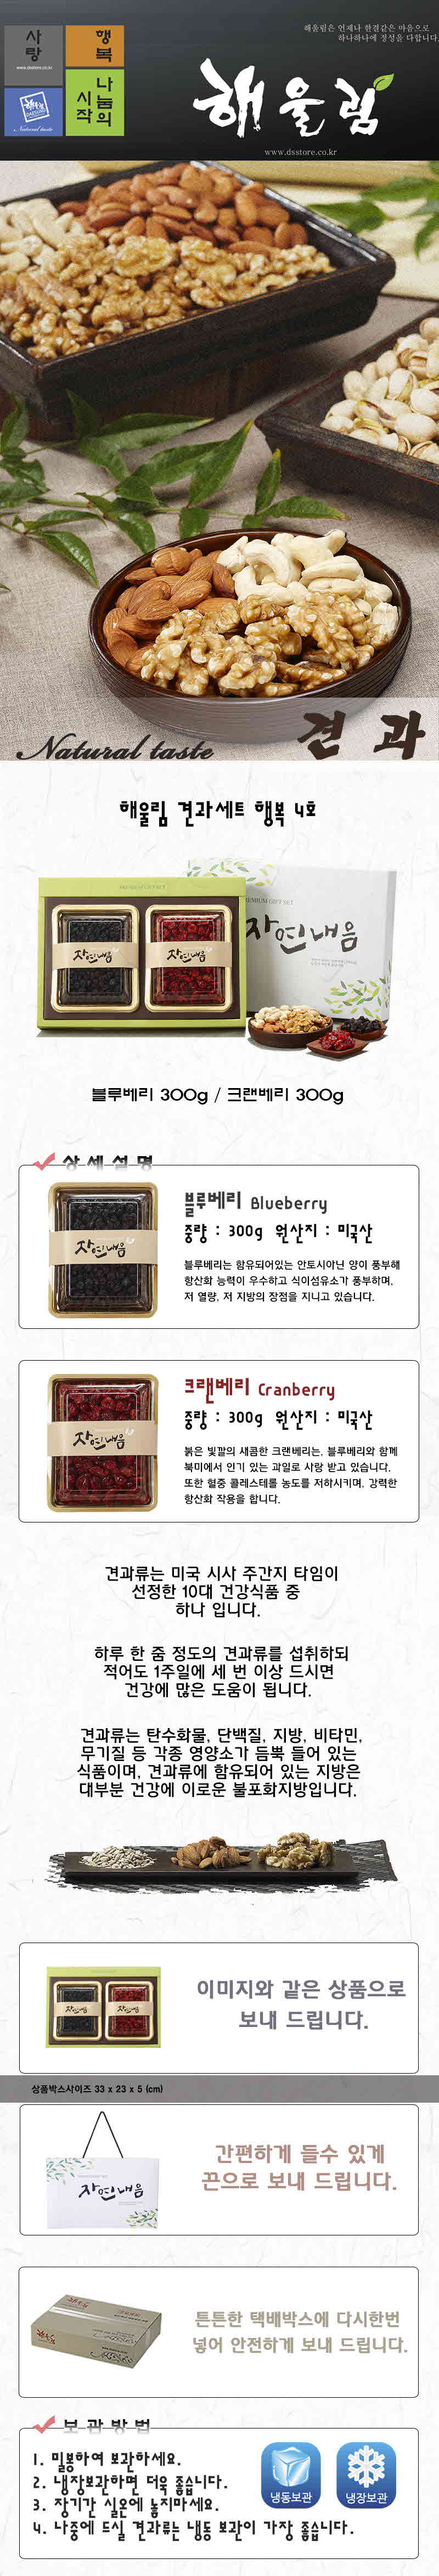 해울림은 언제나 한결같은 마음으로
하나하나에 정성을 다합니다.
사랑
www.dsstore.co.kr
행복
나눔의
시작
Natural taste
해울림
www.dsstore.co.kr
Natural taste
견과
해울림 견과세트 행복 4호
PREMIUM GIFT SET
PREMIUM GIFT SET
자연내음
자연내음
자연내음
블루베리 300g / 크랜베리 300g
상세설명
자연내음
블루베리 Blueberry
중량 : 300g 원산지 : 미국산
블루베리는 함유되어있는 안토시아닌 양이 풍부해
항산화 능력이 우수하고 식이섬유소가 풍부하며,
저 열량, 저 지방의 장점을 지니고 있습니다.
자연내음
크랜베리 Cranberry
중량 : 300g 원산지 : 미국산
붉은 빛깔의 새콤한 크랜베리는, 블루베리와 함께
북미에서 인기 있는 과일로 사랑 받고 있습니다.
또한 혈중 콜레스테롤 농도를 저하시키며, 강력한
항산화 작용을 합니다.
견과류는 미국 시사 주간지 타임이
선정한 10대 건강식품 중
하나 입니다.
하루 한 줌 정도의 견과류를 섭취하되
적어도 1주일에 세 번 이상 드시면
건강에 많은 도움이 됩니다.
견과류는 탄수화물, 단백질, 지방, 비타민,
무기질 등 각종 영양소가 듬북 들어 있는
식품이며, 견과류에 함유되어 있는 지방은
대부분 건강에 이로운 불포화지방입니다.
자연내음
자연내음
이미지와 같은 상품으로
보내 드립니다.
상품박스사이즈 33 x 23 x 5 (cm)
자연내음
간편하게 들수 있게
끈으로 보내 드립니다.
튼튼한 택배박스에 다시한번
넣어 안전하게 보내 드립니다.
보관방법
1. 밀봉하여 보관하세요.
2. 냉장보관하면 더욱 좋습니다.
3. 장기간 실온에 놓지마세요.
4. 나중에 드실 견과류는 냉동 보관이 가장 좋습니다.
냉동보관
냉장보관